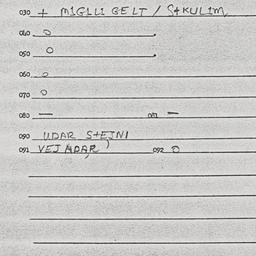 030 + MIGILI GELT / S+KULIM,
040 O
050 O
060 O
070 O
080 — 081 —
090 UDAR S+EINI
091 VEJADAR 092 O